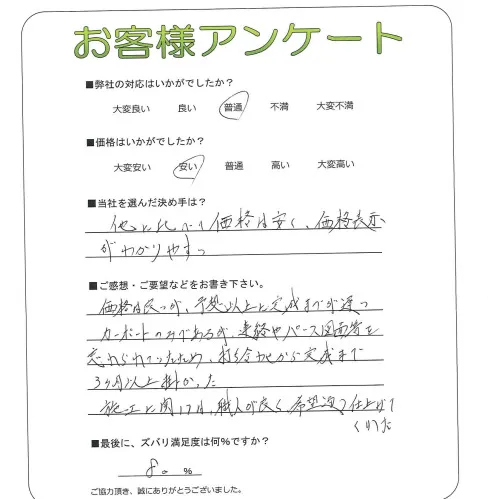 お客様アンケート
■弊社の対応はいかがでしたか？
大変良い 良い 普通 不満 大変不満
■価格はいかがでしたか？
大変安い 安い 普通 高い 大変高い
■当社を選んだ決め手は？
他に比べ価格は安く、価格表示
がわかりやすい
■ご感想・ご要望などをお書き下さい。
価格は良いが、予想以上に完成までが遅い
カーポートのみであるが、連絡やパース図面等を
忘れられていたため、打ち合わせから完成まで
3ヶ月以上掛かった
施工に関しては、職人が良く、希望通り仕上げて
くれた
■最後に、ズバリ満足度は何％ですか？
80 %
ご協力頂き、誠にありがとうございました。